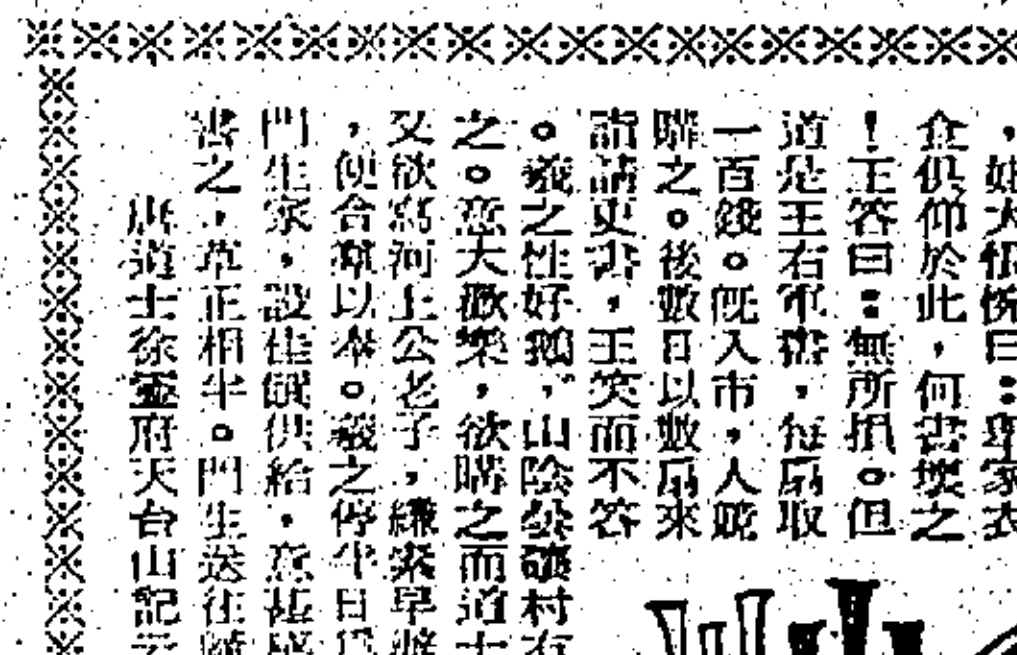 ，姥大悵惋曰：舉家衣
食俱仰於此，何書壞之
！王答曰：無所損。但
道是王右軍書，每扇取
一百錢。既入市，人競
購之。後數日以數扇來
請更書，王笑而不答
。羲之性好鵝，山陰曇村有
之。意大歡樂，欲購之而道士
又欲寫河上公老子，縑素早辦
，便合羣以奉。羲之停半日為
門生家，設佳饌供給，意甚感
書之，草正相半。門生送往歸
唐道士徐靈府天台山記云